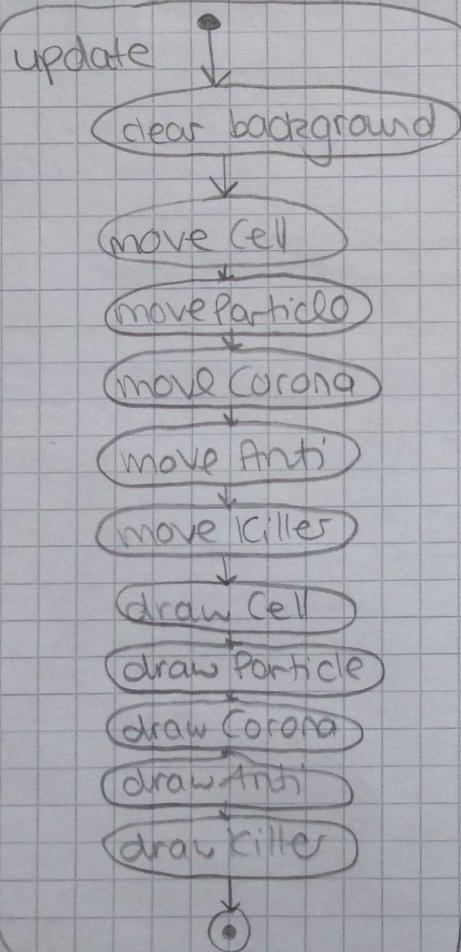 update
clear background
move Cell
move Particle
move Corona
move Anti
move Killer
draw Cell
draw Particle
draw Corona
draw Anti
draw Killer